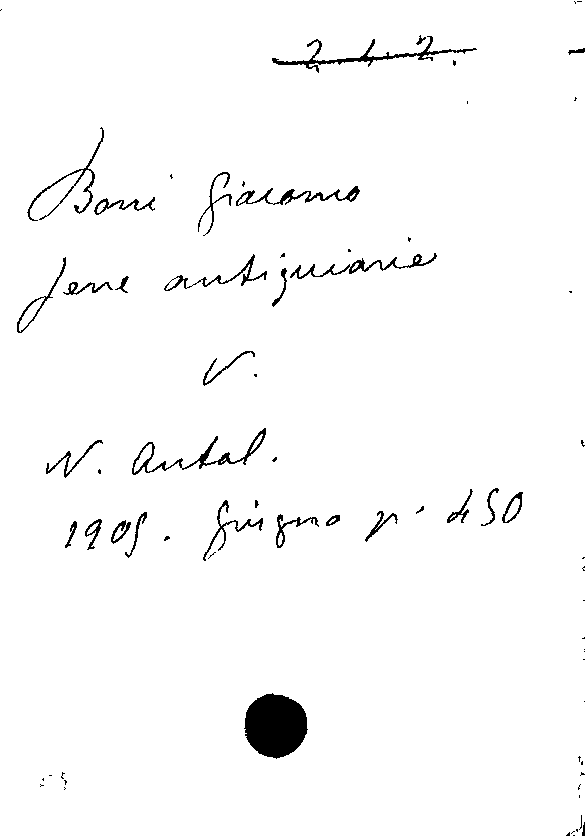 2.4.2.
Boni Giacomo
Jene antiquiarie
V.
N. Antol.
1905. Giugno p. 450